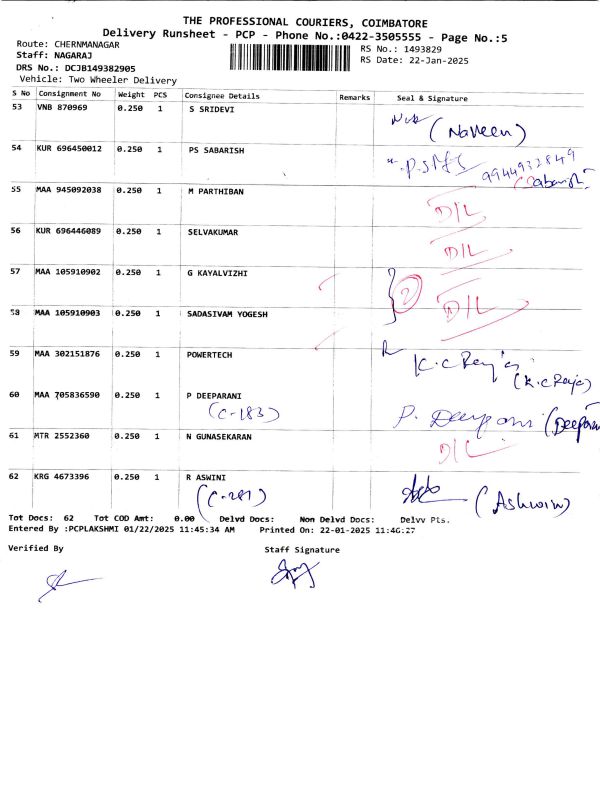 THE PROFESSIONAL COURIERS, COIMBATORE
Delivery Runsheet - PCP - Phone No.:0422-3505555 - Page No.:5
Route: CHERNMANAGAR
RS No.: 1493829
Staff: NAGARAJ
RS Date: 22-Jan-2025
DRS No.: DCJB149382905
Vehicle: Two Wheeler Delivery
S No Consignment No Weight PCS Consignee Details Remarks Seal & Signature
53 VNB 870969 0.250 1 S SRIDEVI (Naveen)
54 KUR 696450012 0.250 1 PS SABARISH 9944932849
55 MAA 945092038 0.250 1 M PARTHIBAN D/L
56 KUR 696446089 0.250 1 SELVAKUMAR D/L
57 MAA 105910902 0.250 1 G KAYALVIZHI 2 D/L
58 MAA 105910903 0.250 1 SADASIVAM YOGESH
59 MAA 302151876 0.250 1 POWERTECH
(K.C Raja)
60 MAA 705836590 0.250 1 P DEEPARANI
(C-183) P. Deeparani
61 MTR 2552360 0.250 1 N GUNASEKARAN D/L
62 KRG 4673396 0.250 1 R ASWINI
(Ashwin)
Tot Docs: 62 Tot COD Amt: 0.00 Delvd Docs: Non Delvd Docs: Delvv Pls.
Entered By :PCPLAKSHMI 01/22/2025 11:45:34 AM Printed On: 22-01-2025 11:46:27
Verified By Staff Signature